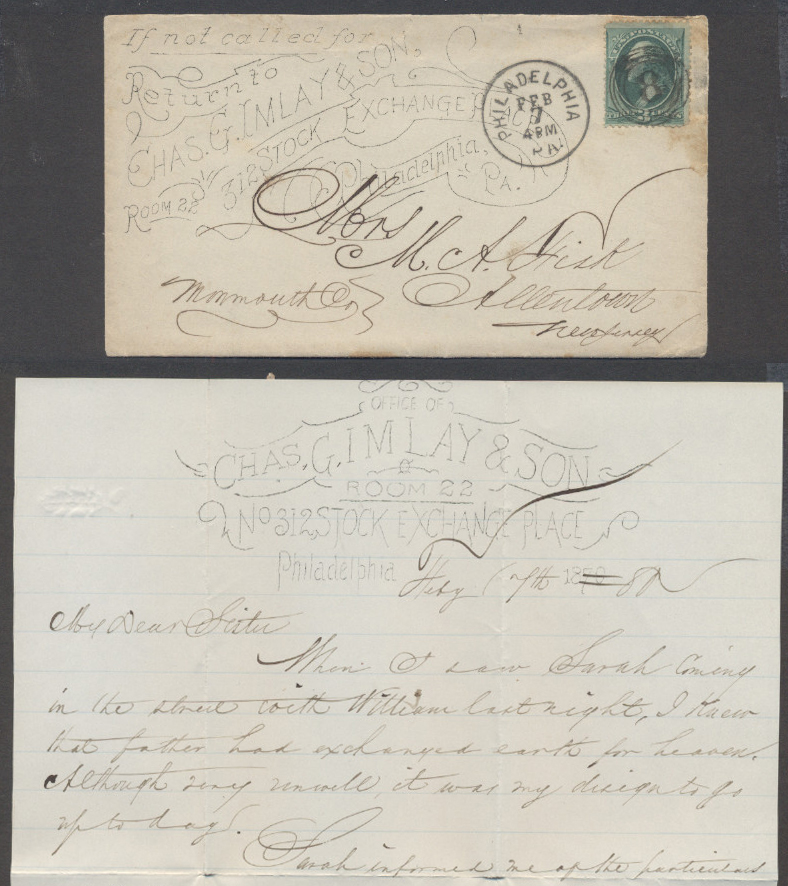 If not called for
Return to
CHAS. G. IMLAY & SON,
312 STOCK EXCHANGE PLACE
Philadelphia,
PA.
ROOM 22
PHILADELPHIA
FEB
7
4PM
PA.
Mrs
M. A. Fisk
Allentown
Monmouth Co
New Jersey
OFFICE OF
CHAS. G. IMLAY & SON
ROOM 22
No 312, STOCK EXCHANGE PLACE
Philadelphia Feby 7th 80
My Dear Sister
When I saw Sarah coming
in the street with William last night, I knew
that father had exchanged earth for heaven.
Although very unwell, it was my design to go
up to day.
Sarah informed me of the particulars